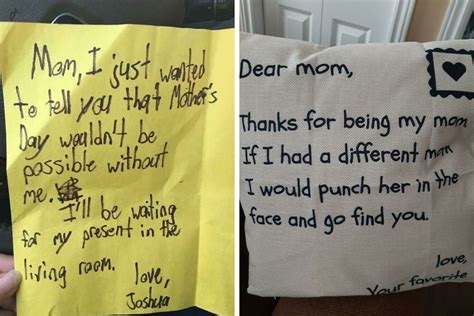 Mom, I just wanted
to tell you that Mother's
Day wouldn't be
possible without
me.
I'll be waiting
for my present in the
living room.
love,
Joshua
Dear mom,
Thanks for being my mom
If I had a different mom
I would punch her in the
face and go find you.
love,
Your favorite